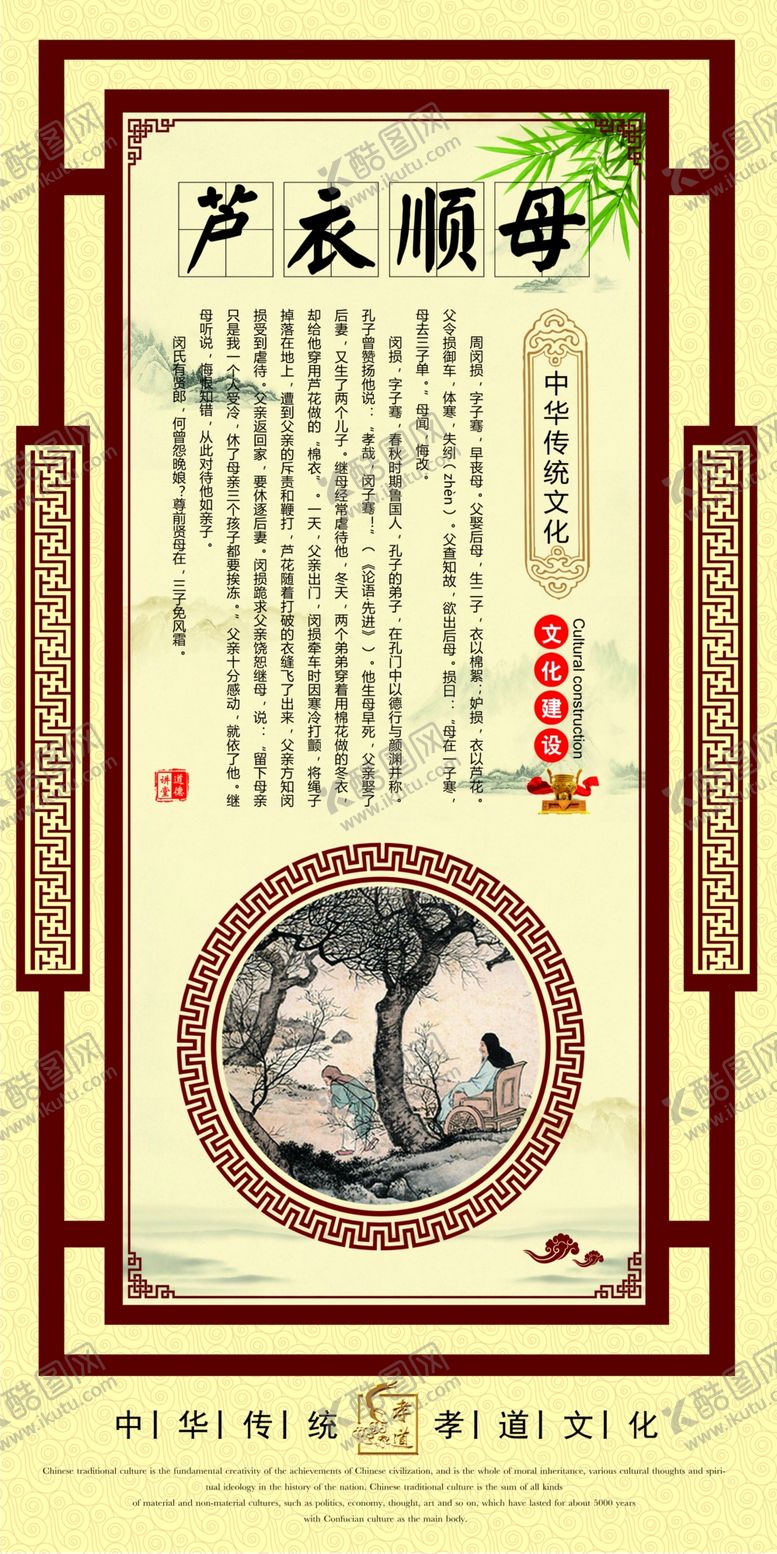 芦衣顺母
中华传统文化
文化建设
Cultural construction
周闵损，字子骞，早丧母。父娶后母，生二子，衣以棉絮；妒损，衣以芦花。
父令损御车，体寒，失纼（zhèn）。父查知故，欲出后母。损曰：“母在一子寒，
母去三子单。”母闻，悔改。
闵损，字子骞，春秋时期鲁国人，孔子的弟子，在孔门中以德行与颜渊并称。
孔子曾赞扬他说：“孝哉，闵子骞！”（《论语·先进》）。他生母早死，父亲娶了
后妻，又生了两个儿子。继母经常虐待他，冬天，两个弟弟穿着用棉花做的冬衣，
却给他穿用芦花做的“棉衣”。一天，父亲出门，闵损牵车时因寒冷打颤，将绳子
掉落在地上，遭到父亲的斥责和鞭打，芦花随着打破的衣缝飞了出来，父亲方知闵
损受到虐待。父亲返回家，要休逐后妻。闵损跪求父亲饶恕继母，说：“留下母亲
只是我一个人受冷，休了母亲三个孩子都要挨冻。”父亲十分感动，就依了他。继
母听说，悔恨知错，从此对待他如亲子。
闵氏有贤郎，何曾怨晚娘？尊前贤母在，三子免风霜。
道德
讲堂
中华传统
孝道
孝道文化
Chinese traditional culture is the fundamental creativity of the achievements of Chinese civilization, and is the whole of moral inheritance, various cultural thoughts and spiri-
tual ideology in the history of the nation. Chinese traditional culture is the sum of all kinds
of material and non-material cultures, such as politics, economy, thought, art and so on, which have lasted for about 5000 years
with Confucian culture as the main body.
酷图网
www.ikutu.com